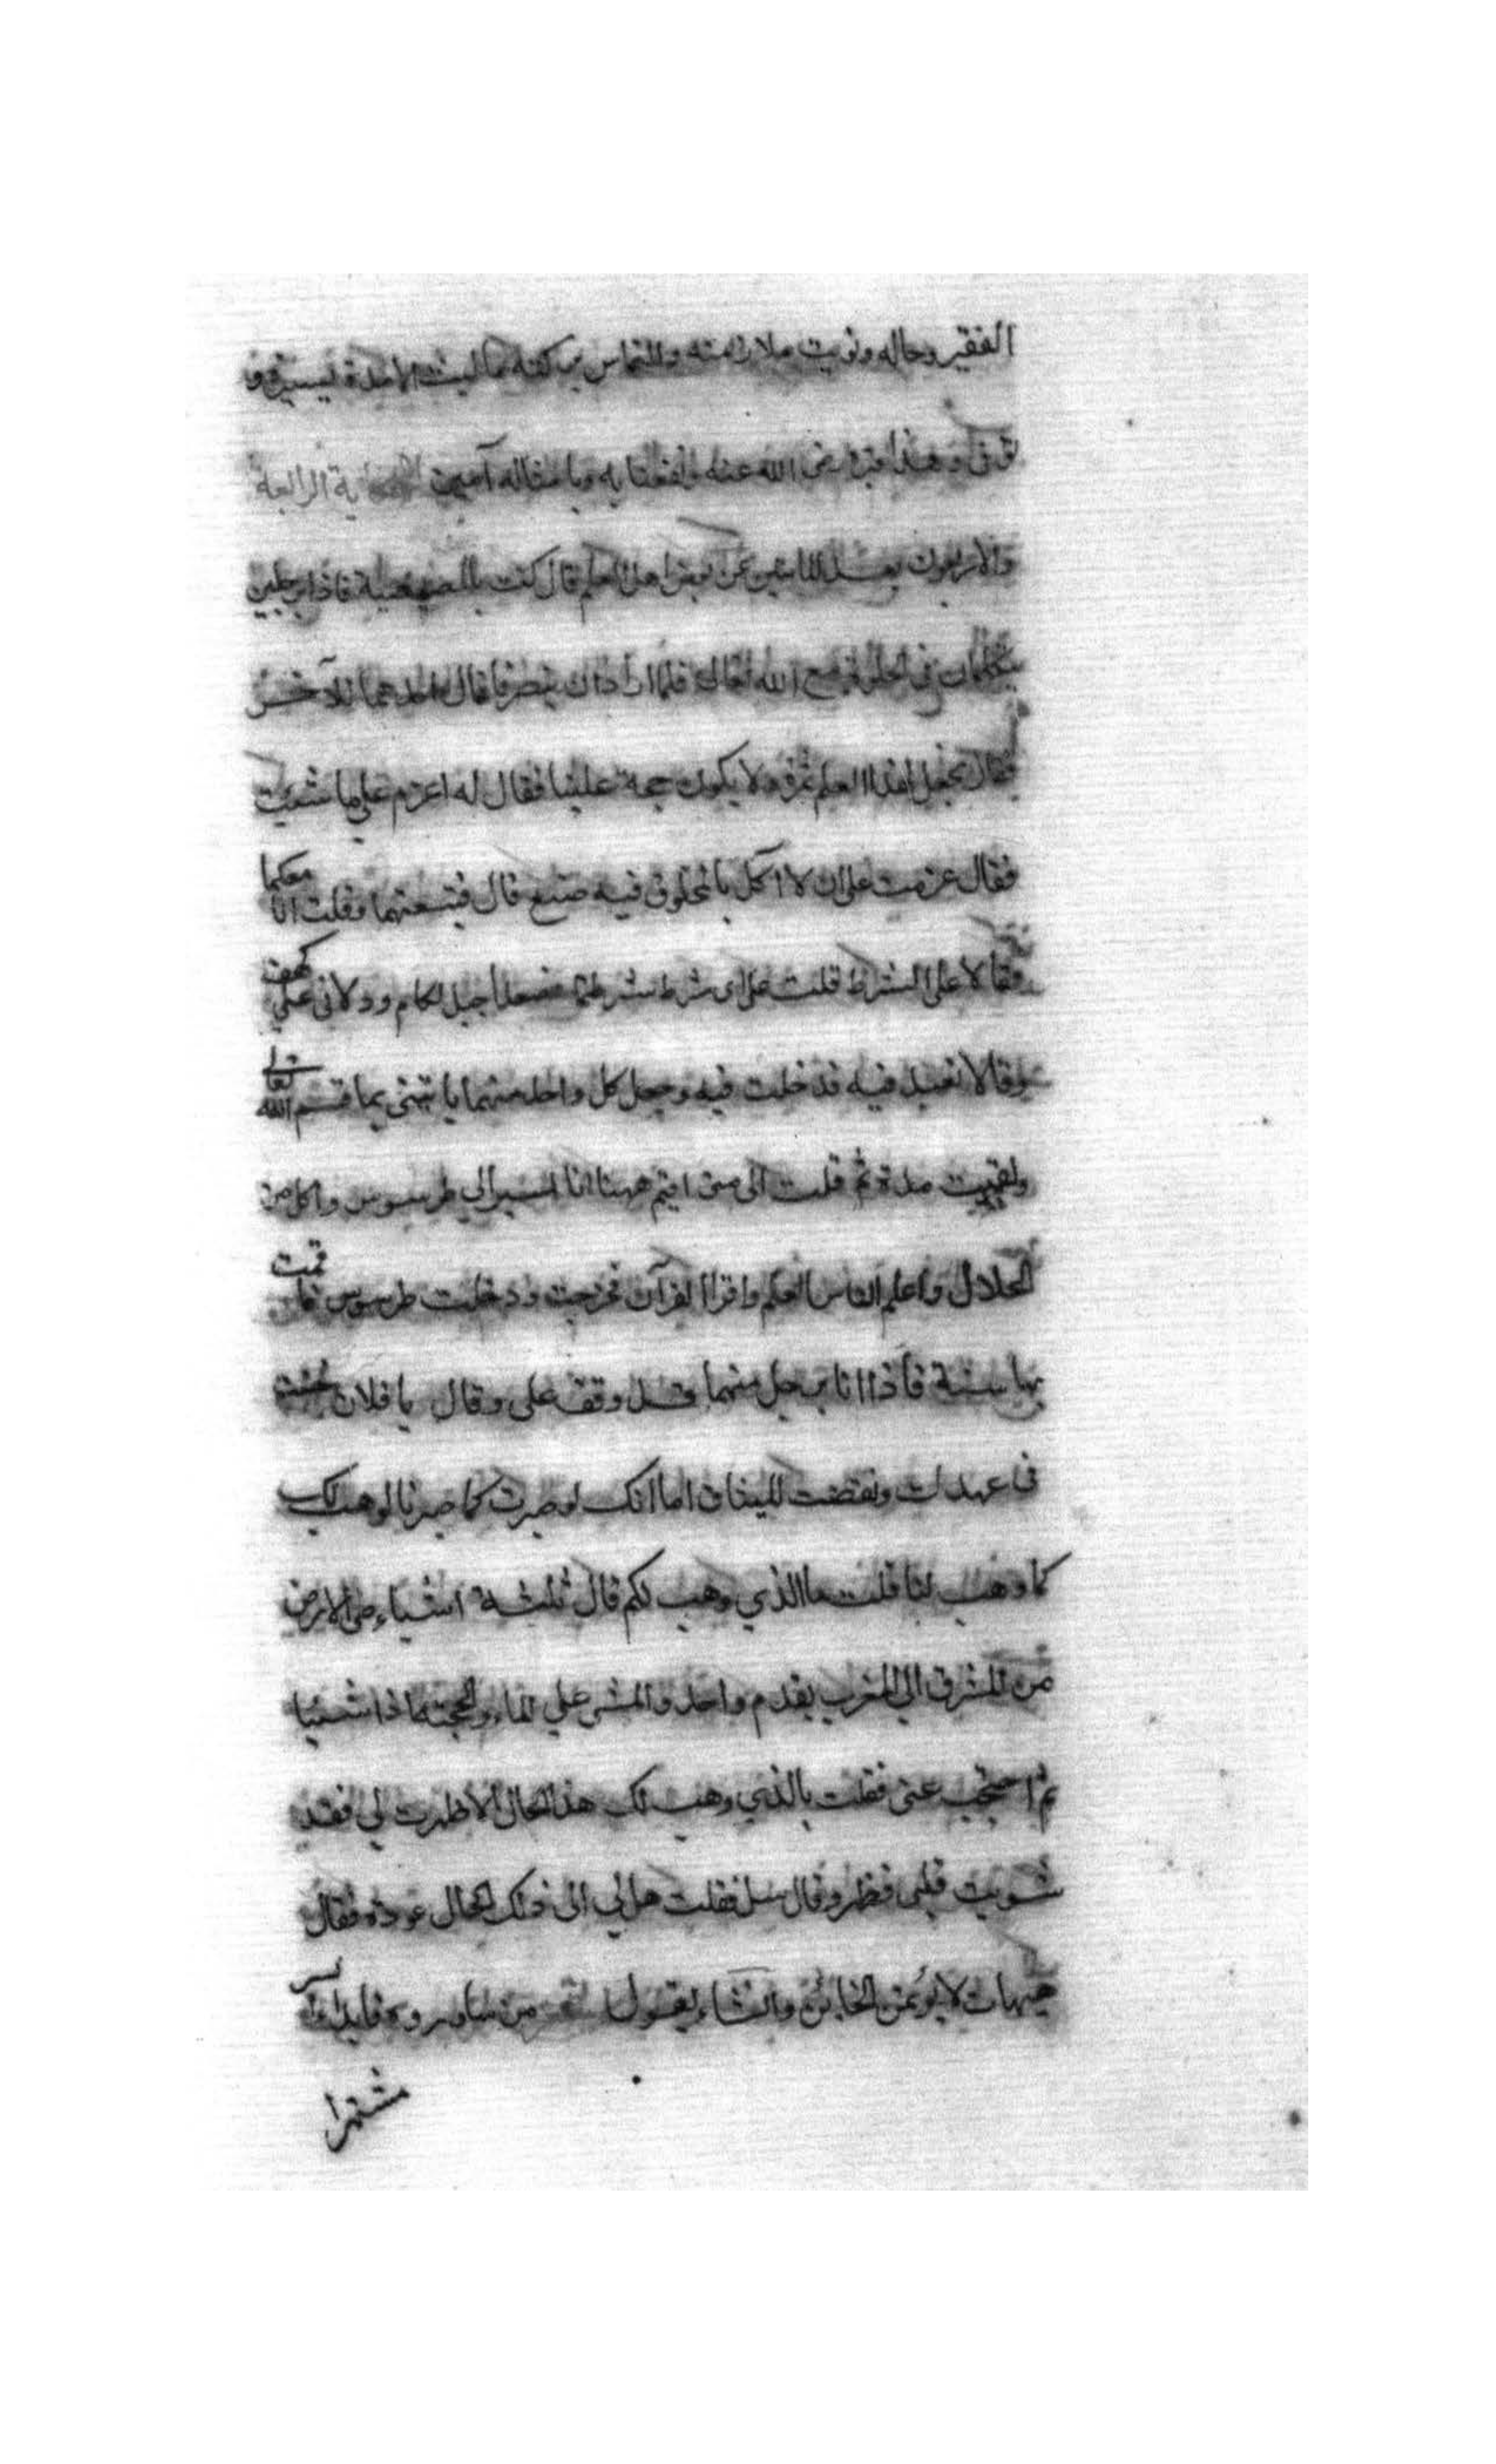 الفقير وحاله ونويت ملازمته والتماس بركته فما لبث الا مدة يسيرة و
توفى وهذا قبره رضى الله عنه ونفعنا به وبامثاله آمين الحكاية الرابعة
والاربعون بعد المايتين عن بعض اهل العلم قال كنت بالمصيصة فاذا برجلين
يتكلمان في الخلوة مع الله تعالى فلما ارادا ان ينصرفا قال احدهما للآخر
فقال نجعل لهذا العلم ثمرة ولا يكون حجة علينا فقال له اعزم على ما شئت
فقال عزمت على ان لا اكل ما لمخلوق فيه صنع قال فتبعتهما وقلت انا معكما
فقالا على الشرط قلت على اى شرط شرطتما فصعدا جبل لكام ودلانى على كهف
وقالا تعبد فيه فدخلت فيه وجعل كل واحد منهما ياتيني بما قسم الله تعالى
وبقيت مدة ثم قلت الى متى اقيم ههنا انا اسير الي طرسوس واكل من
الحلال واعلم الناس العلم واقرا القرآن فخرجت ودخلت طرسوس فاقمت
بها سنة فاذا انا برجل منهما قد وقف على وقال يا فلان خنت
فى عهدك ونقضت الميثاق اما انك لو صبرت كما صبرنا لوهب لك
كما وهب لنا قلت ما الذي وهب لكم قال ثلثة اشياء طى الارض
من المشرق الي المغرب بقدم واحد والمشى علي الماء والحجبة اذا شئنا
ثم احتجب عنى فقلت بالذي وهب لك هذا الحال الا ظهرت لي فقد
شويت قلبى فظهر وقال سل فقلت هل لي الى ذلك الحال عودة فقال
هيهات لا يؤمن الخائن وانشاء يقول من ساوروه فابدا السر
مشتهرا